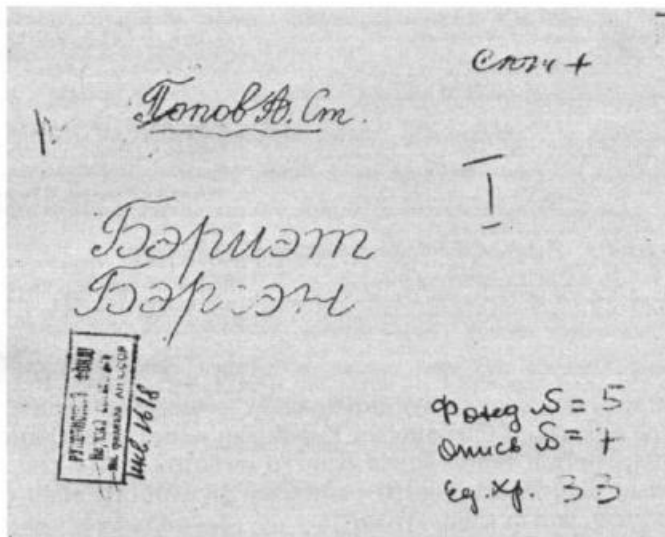 Попов А. Ст.
I
Бэриэт
Бэргэн
РУКОПИСНЫЙ ФОНД
инв 1618
Фонд № = 5
Опись № =
Ед. хр. 33